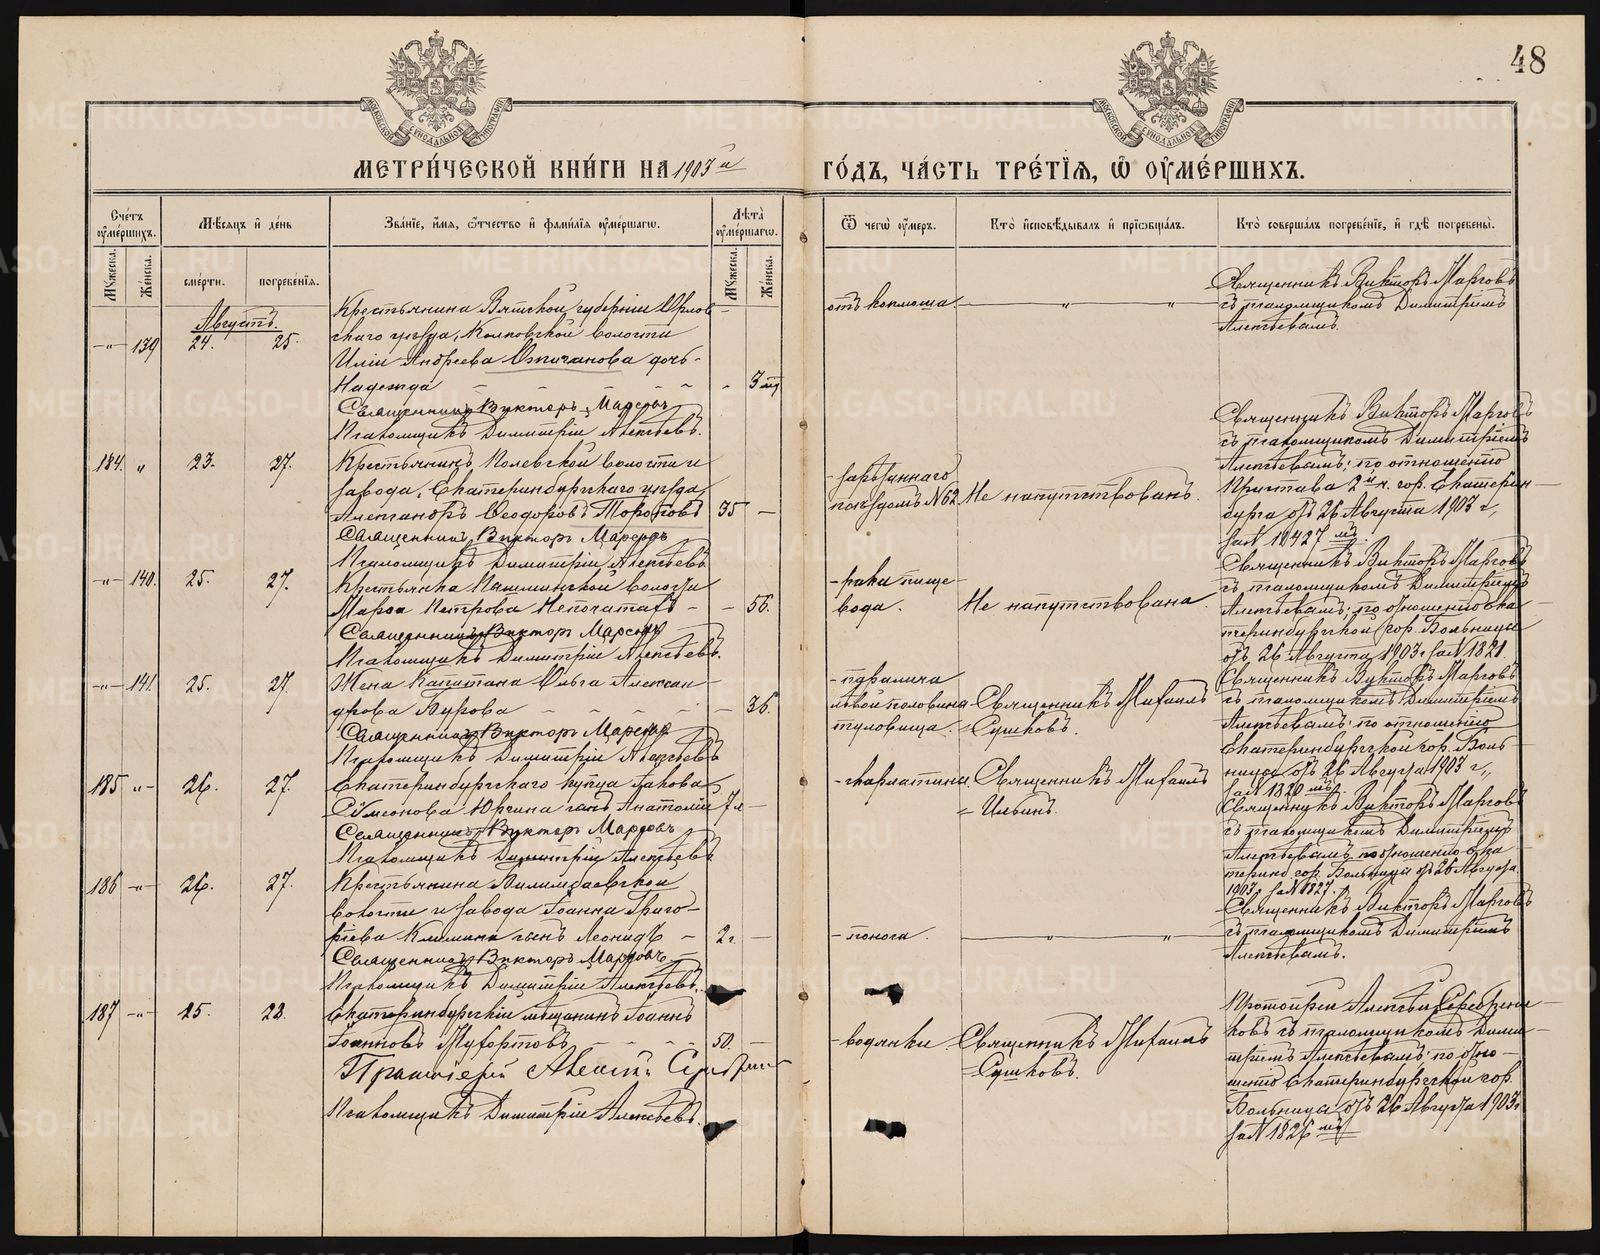 48
МЕТРИ́ЧЕСКОЙ КНИ́ГИ НА 1903й ГО́ДЪ, ЧА́СТЬ ТРЕ́ТІЯ, Ѿ ОУМЕ́РШИХЪ.
Счетъ оумершихъ.
Мѣсяцъ и день
Званіе, имя, отчество и фамилія оумершагѡ.
Лѣта оумершагѡ.
Ѿ чегѡ оумеръ.
Кто исповѣдывалъ и пріѡбщалъ.
Кто совершалъ погребеніе, и гдѣ погребены.
Мꙋжеска.
Женска.
смерти.
погребенія.
Мꙋжеска.
Женска.
Августъ.
-"- 139 24. 25.
Крестьянина Вятской губерніи Орлов
скаго уѣзда,
волости
Иліи Андреева
дочь
Надежда - 3 мѣ
Священникъ Викторъ
Псаломщикъ Димитрій Алексѣевъ.
отъ коклюша. " "
Священникъ Викторъ
съ псаломщикомъ Димитріемъ
Алексѣевымъ.
184. " 23. 27.
Крестьянинъ Полевской волости и
завода, Екатеринбургскаго уѣзда
Александръ Ѳеодоровъ 35 -
Священникъ Викторъ
Псаломщикъ Димитрій Алексѣевъ
- зарѣзаннаго
поѣздомъ N 62
Не напутствованъ.
Священникъ Викторъ
съ псаломщикомъ Димитріемъ
Алексѣевымъ; по отношенію
Пристава 2й ч. гор. Екатерин
бурга отъ 26 Августа 1903 г.,
за N 10427 мъ.
-"- 140. 25. 27.
Крестьянка
волости
Марѳа Петрова - - 56.
Священникъ Викторъ
Псаломщикъ Димитрій Алексѣевъ.
- рака пище-
вода.
Не напутствована.
Священникъ Викторъ
съ псаломщикомъ Димитріемъ
Алексѣевымъ; по отношенію Ека
теринбургской гор. Больницы
отъ 26 Августа 1903 г. за N 1821
-"- 141. 25. 27.
Жена Капитана Ольга Алексан-
дрова - 36.
Священникъ Викторъ
Псаломщикъ Димитрій Алексѣевъ
- паралича
лѣвой половины
туловища.
Священникъ Михаилъ
Сушковъ.
Священникъ Викторъ
съ псаломщикомъ Димитріемъ
Алексѣевымъ; по отношенію
Екатеринбургской гор. Боль-
ницы отъ 26 Августа 1903 г.,
за N 1820 мъ.
185 -"- 26. 27.
Екатеринбургскаго купца Іакова
Сѵмеонова
сынъ Анатолій 7 л -
Священникъ Викторъ
Псаломщикъ Димитрій Алексѣевъ
- скарлатины.
Священникъ Михаилъ
= Ильинъ.
Священникъ Викторъ
съ псаломщикомъ Димитріемъ
Алексѣевымъ по отношенію Ека
теринб. гор. Больницы отъ 26 Августа
1903, за N 1827.
186 -"- 26. 27.
Крестьянина
волости и завода Іоанна Григо-
ріева
сынъ Леонидъ - 2 г. -
Священникъ Викторъ
Псаломщикъ Димитрій Алексѣевъ.
- поноса. " "
Священникъ Викторъ
съ псаломщикомъ Димитріемъ
Алексѣевымъ.
187 -"- 25. 28.
Екатеринбургскій мѣщанинъ Іоаннъ
Іоанновъ
50. -
Протоіерей
Псаломщикъ Димитрій Алексѣевъ.
- водянки
Священникъ Михаилъ
= Сушковъ.
Протоіерей Алексѣй
съ псаломщикомъ Дими-
тріемъ Алексѣевымъ по отно-
шенію Екатеринбургской гор.
Больницы отъ 26 Августа 1903 г
за N 1826 мъ
METRIKI.GASO-URAL.RU